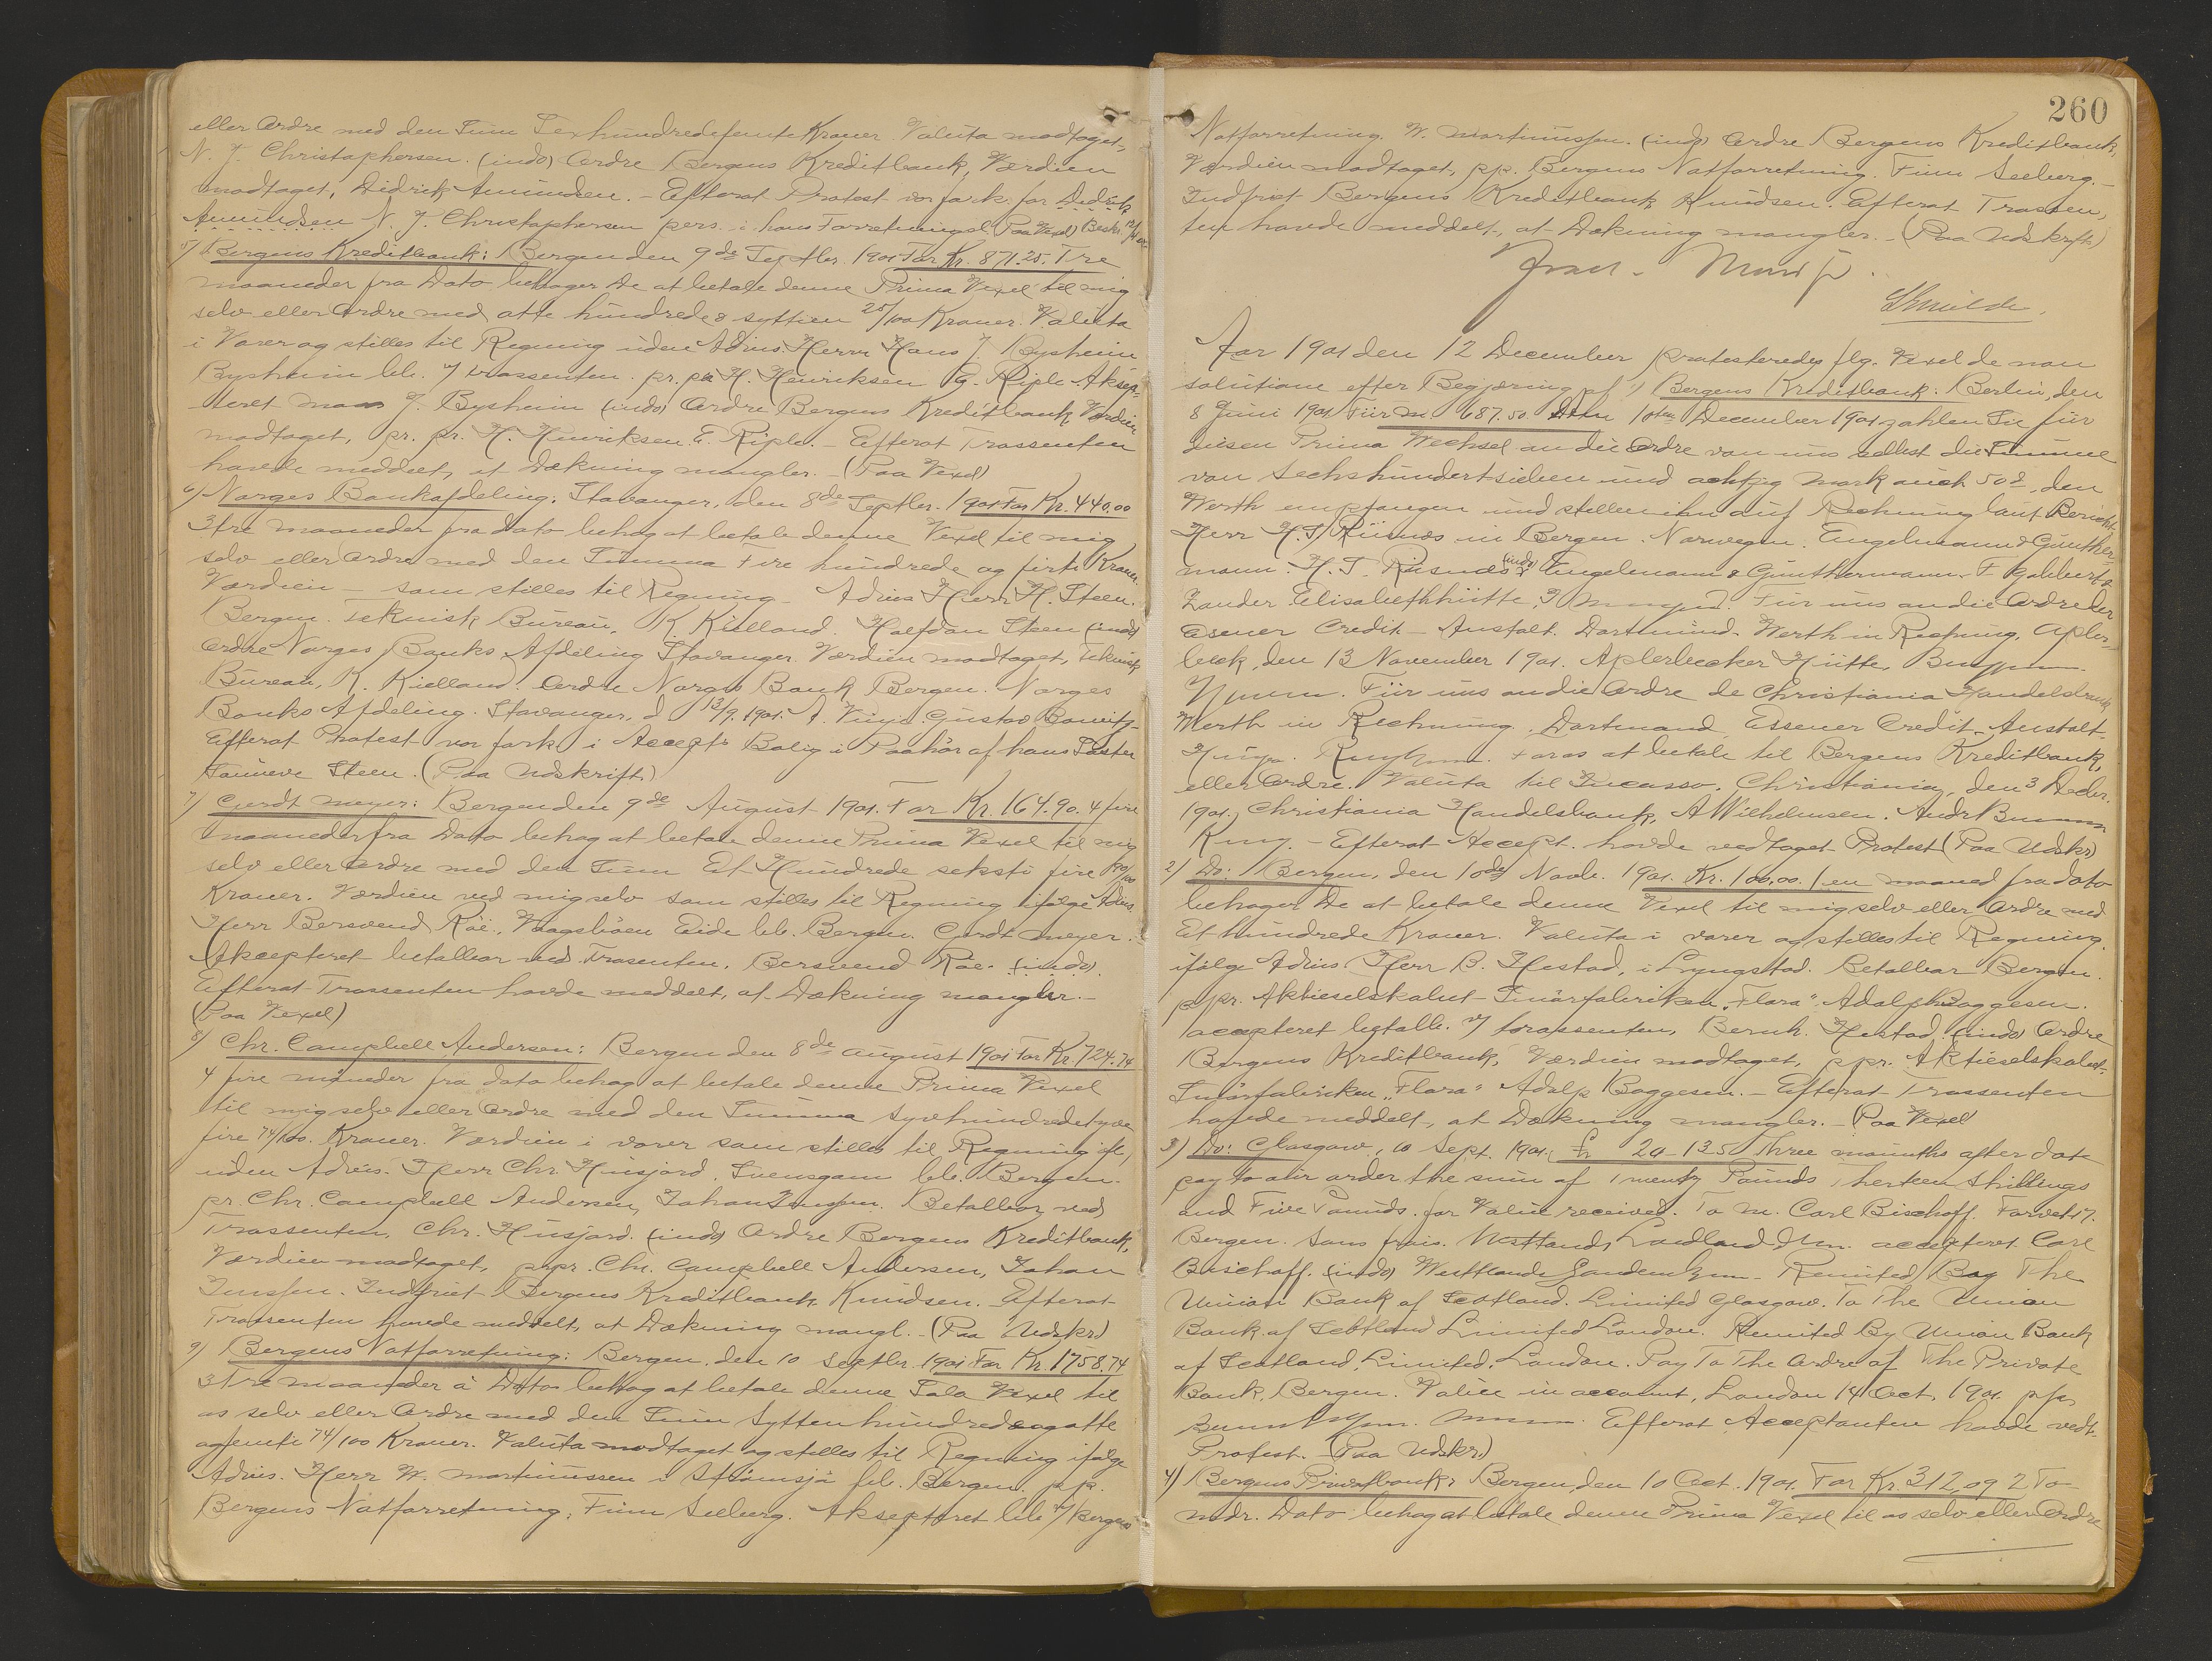 eller Ordre med den Sum Sexhundredefemti Kroner Valuta modtaget,
N. J. Christophersen. (indo) Ordre Bergens Kreditbank, Værdien
modtaget, Didrik Amundsen. - Efterat Protest vor fark. for Didrik
Amundsen N. J. Christophersen pers. i hans Forretningsl. (Paa Vexel)
5) Bergens Kreditbank: Bergen den 9de Septbr. 1901 For Kr. 871.25. Tre
maaneder fra Dato behager De at betale denne Prima Vexel til mig
selv eller Ordre med otte hundrede & syttien 25/100 Kroner. Valuta
i Varer og stilles til Regning uden Advis. Herrn Hans J. Bysheim
Bysheim bb. v/ trassenten. pr. pa H. Henriksen G. Riple Aksep-
teret Hans J. Bysheim (indo) Ordre Bergens Kreditbank Værdien
modtaget, pr. pr. H. Henriksen G. Riple. - Efterat Trassenten
havde meddelt, at Dækning mangler. - (Paa Vexel)
6) Norges Bankafdeling: Stavanger, den 8de Septbr. 1901 For Kr. 440.00
3 tre maaneder fra dato behag at betale denne Vexel til mig
selv eller Ordre med den Summa Fire hundrede og firti Kroner.
Værdien - som stilles til Regning - Advis Herr H. Steen.
Bergen. Teknisk Bureau, K. Kielland. Halfdan Steen (indo)
Ordre Norges Banks Afdeling Stavanger. Værdien modtaget, Teknisk
Bureau, K. Kielland. Ordre Norges Bank Bergen. Norges
Banks Afdeling. Stavanger, d 13/9. 1901. A. Gustav
Efterat Protest vor fark i Accept. Bolig i Paahør af hans Søster
Steen. (Paa Udskrift)
7) Gerdt Meyer: Bergen den 9de August 1901. For Kr. 164.90. 4 fire
maaneder fra Dato behag at betale denne Prima Vexel til mig
selv eller Ordre med den Sum Et Hundrede seksti fire 90/100
Kroner. Værdien ved mig selv som stilles til Regning ifølge Advis
Herr Bersvend Röe, Vaagsbøen Eide bb. Bergen. Gerdt Meyer.
Akcepteret betalbar ved Trasenten. Bersvend Röe. (indo).
Efterat Trassenten havde meddelt, at Dækning mangler. -
(Paa Vexel)
8) Chr. Campbell Andersen: Bergen den 8de august 1901 For Kr. 724.74
4 fire måneder fra dato behag at betale denne Prima Vexel
til mig selv eller Ordre med den Summa syvhundredetyve
fire 74/100. Kroner. Værdien i varer som stilles til Regning ifl,
uden Advis. Herr Chr. Husjord. Svensgam bb. Bergen.
pr. Chr. Campbell Andersen, Johan Jenssen. Betalbar ved
Trassenten, Chr. Husjord. (indo) Ordre Bergens Kreditbank,
Værdien modtaget, pr pr. Chr. Campbell Andersen, Johan
Jenssen. Indfriet Bergens Kreditbank Knudsen. - Efterat
Trassenten havde meddelt, at Dækning mangl. - (Paa Udskr.)
9) Bergens Notforretning: Bergen, den 10 Septbr. 1901 For Kr. 1758.74
3 Tre maaneder à Dato behag at betale denne Sola Vexel til
os selv eller Ordre med den Sum Sytten hundredeogotte
ogfemti 74/100 Kroner. Valuta modtaget og stilles til Regning ifølge
Advis. Herr W. Martinussen i bb. Bergen. p.p.
Bergens Notforretning, Finn Seeberg. Aksepteret bb. v/ Bergens
260
Notforretning. W. Martinussen. (indo) Ordre Bergens Kreditbank,
Værdien modtaget, pp. Bergens Notforretning. Finn Seeberg. -
Indfriet Bergens Kreditbank Knudsen. Efterat Trassen-
ten havde meddelt, at Dækning mangler. - (Paa Udskrift)
Aar 1901 den 12 December protesteredes flg. Vexel de non
solutione efter Begjæring af 1) Bergens Kreditbank: Berlin, den
8 Juni 1901 Für M. 687.50 10ten December 1901 zahlen Sie für
diesen Prima Wechsel an die Ordre von uns selbst die Summe
von Sechshundertsieben und achtzig Mark auch 50 , den
Werth empfangen und stellen ihn auf Rechnung laut Bericht.
Herr H. J. Riisnæs in Bergen. Norwegen. Engelmann & Günther-
mann. H. J. Riisnæs (indo) Engelmann & Günthermann.
Zander Elisabethhütte. Für uns an die Ordre der
Esener Credit-Anstalt. Dortmund. Werth in Rechnung. Apler-
beck, den 13 November 1901. Aplerbecker Hütte,
Für uns an die Ordre de Christiania Handelsbank
Werth in Rechnung. Dortmund. Essener Credit-Anstalt.
at betale til Bergens Kreditbank,
eller Ordre. Valuta til Incasso. Christiania, den 3 Decbr.
1901. Christiania Handelsbank, A Wilhelmsen. Andr
- Efterat Accept. havde vedtaget Protest (Paa Udskr)
2) Do: Bergen, den 10de Novb. 1901. Kr. 100,00. 1 en maaned fra dato
behager De at betale denne Vexel til mig selv eller Ordre med
Et hundrede Kroner. Valuta i varer og stilles til Regning.
ifølge Advis. Herr B. Hestad, i Lyngstad. Betalbar Bergen.
p. pr. Aktieselskabet Smørfabriken "Flora". Adolph Boggesen.
accepteret betalb. v/ trassenten, Bernh. Hestad. (indo) Ordre
Bergens Kreditbank, Værdien modtaget, ppr. Aktieselskabet
Smørfabriken "Flora" Adolp Boggesen. - Efterat Trassenten
havde meddelt, at Dækning mangler. - Paa Vexel
3) Do: Glasgow, 10 Sept. 1901. £ 20-13.5 Three mounths after date
pay to our order the sum of Twenty Pounds Therteen Shillings
and Five Pounds. for Value received. To M. Carl Bischoff. Torvet 17.
Bergen. Sans frais. accepteret Carl
Bischoff. (indo) Remited Bag The
Union Bank of Scotland. Limited Glasgow. To The Union
Bank of Scotland Limited London. Remited By Union Bank
of Scotland, Limited. London. Pay To The Ordre of The Private
Bank, Bergen. Value in account, London 14 Oct. 1901. pp.
Efterat Acceptanten havde vedt.
Protest. - (Paa Udskr.)
4) Bergens Privatbank: Bergen, den 10 Oct. 1901. For Kr. 312,09 2 To
mdr. Dato behag at betale denne Prima Vexel til os selv eller Ordre